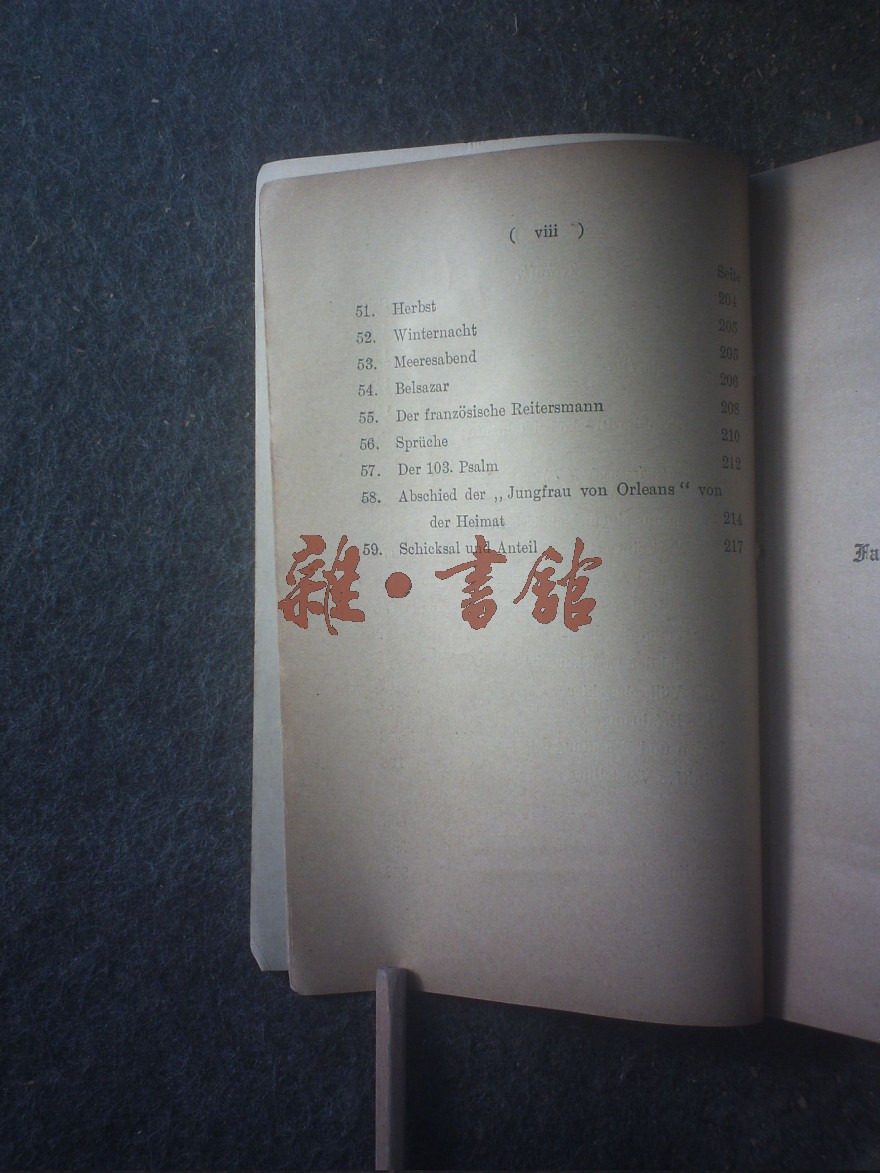 ( viii )
Seite
51. Herbst 204
52. Winternacht 205
53. Meeresabend 205
54. Belsazar 206
55. Der französische Reitersmann 208
56. Sprüche 210
57. Der 103. Psalm 212
58. Abschied der „Jungfrau von Orleans“ von
der Heimat 214
59. Schicksal und Anteil 217
雜·書館
Fa